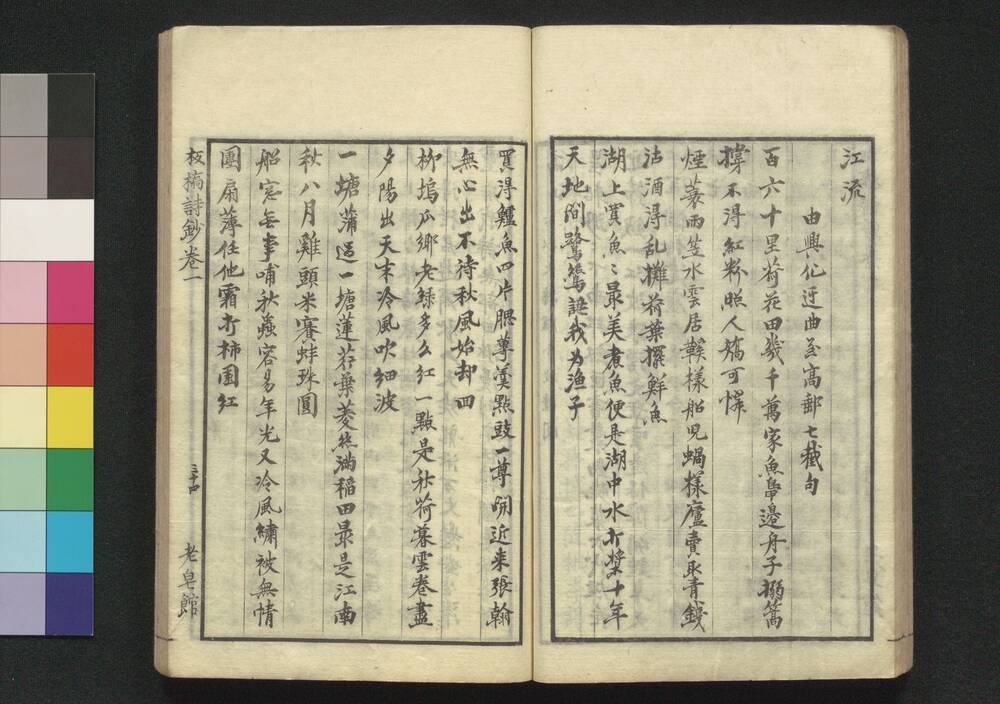 江流
由興化迂曲至高郵七截句
百六十里荷花田幾千萬家魚鴨邊舟子搦篙
撑不得紅粉照人嬌可憐
煙蓑雨笠水雲居鞵樣船兒蝸樣廬賣取青錢
沽酒得乱攤荷葉擺鮮魚
湖上買魚〻最美煮魚便是湖中水打槳十年
天地間鷺鷥認我为漁子
買得鱸魚四片腮蓴羹點豉一尊開近来張翰
無心出不待秋風始却回
柳塢瓜鄉老綠多么紅一點是秋荷暮雲卷盡
夕陽出天末冷風吹細波
一塘蒲過一塘蓮荇葉菱絲滿稲田最是江南
秋八月雞頭米賽蚌珠圓
船窓無事哺秋蟲容易年光又冷風繡被無情
團扇薄任他霜打柿園红
板橋詩鈔卷一
三十四
老皂館